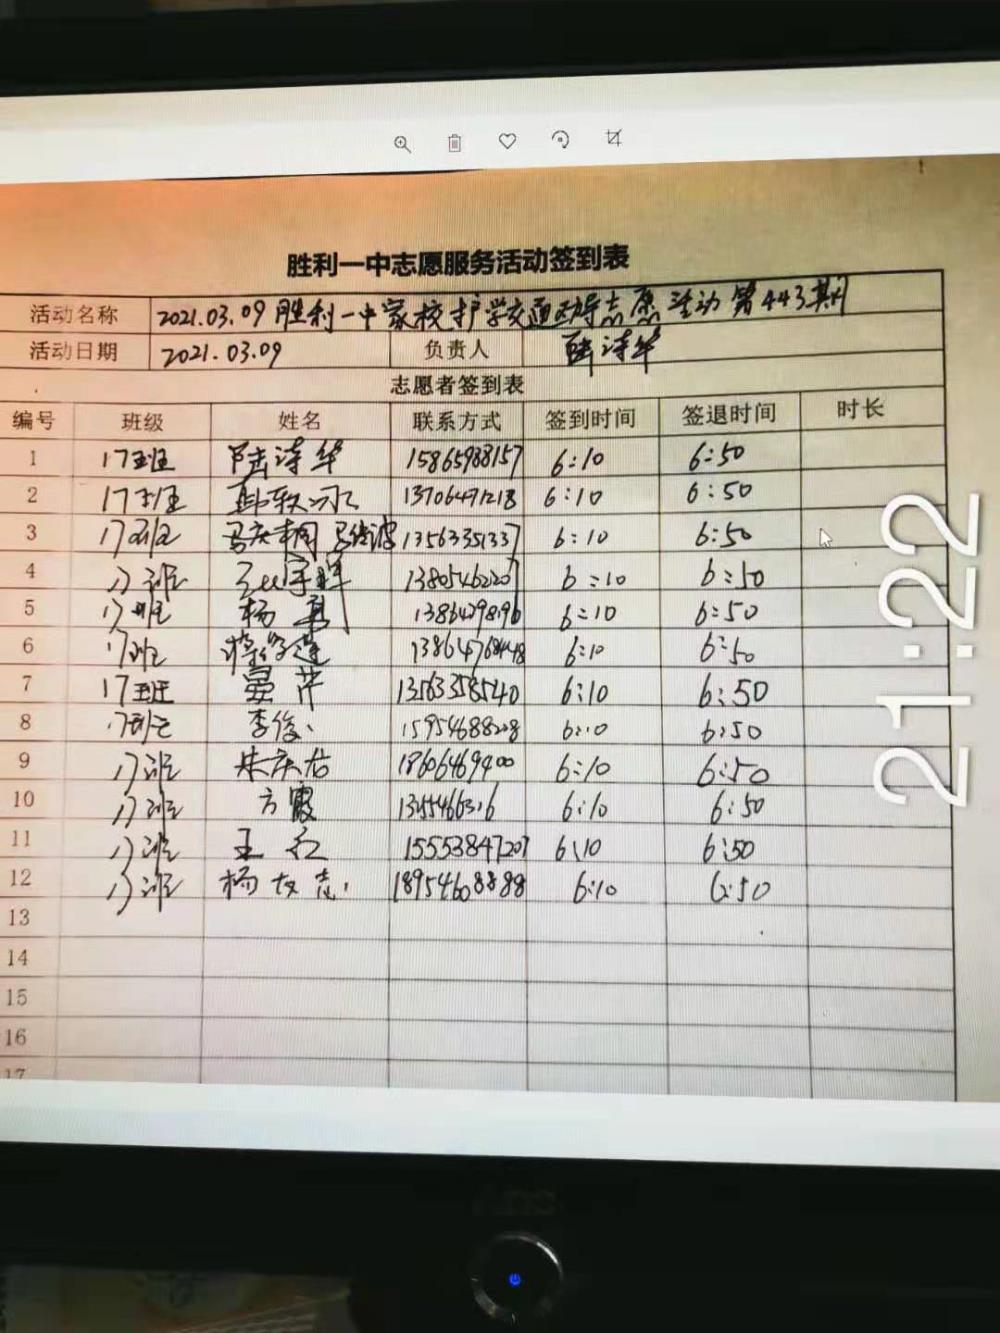 胜利一中志愿服务活动签到表
活动名称 2021.03.09胜利一中家校护学交通劝导志愿活动第443期
活动日期 2021.03.09 负责人 陆诗华
志愿者签到表
编号 班级 姓名 联系方式 签到时间 签退时间 时长
1 17班 陆诗华 15865988157 6:10 6:50
2 17班 13706471218 6:10 6:50
3 17班 13563351337 6:10 6:50
4 17班 13805462207 6:10 6:50
5 17班 杨勇 6:10 6:50
6 17班 6:10 6:50
7 17班 晏萍 13563358540 6:10 6:50
8 17班 李俊 15954688208 6:10 6:50
9 17班 朱庆友 18606469400 6:10 6:50
10 17班 方霞 6:10 6:50
11 17班 王红 15553847207 6:10 6:50
12 17班 杨友志 18954608888 6:10 6:50
13
14
15
16
17
21:22